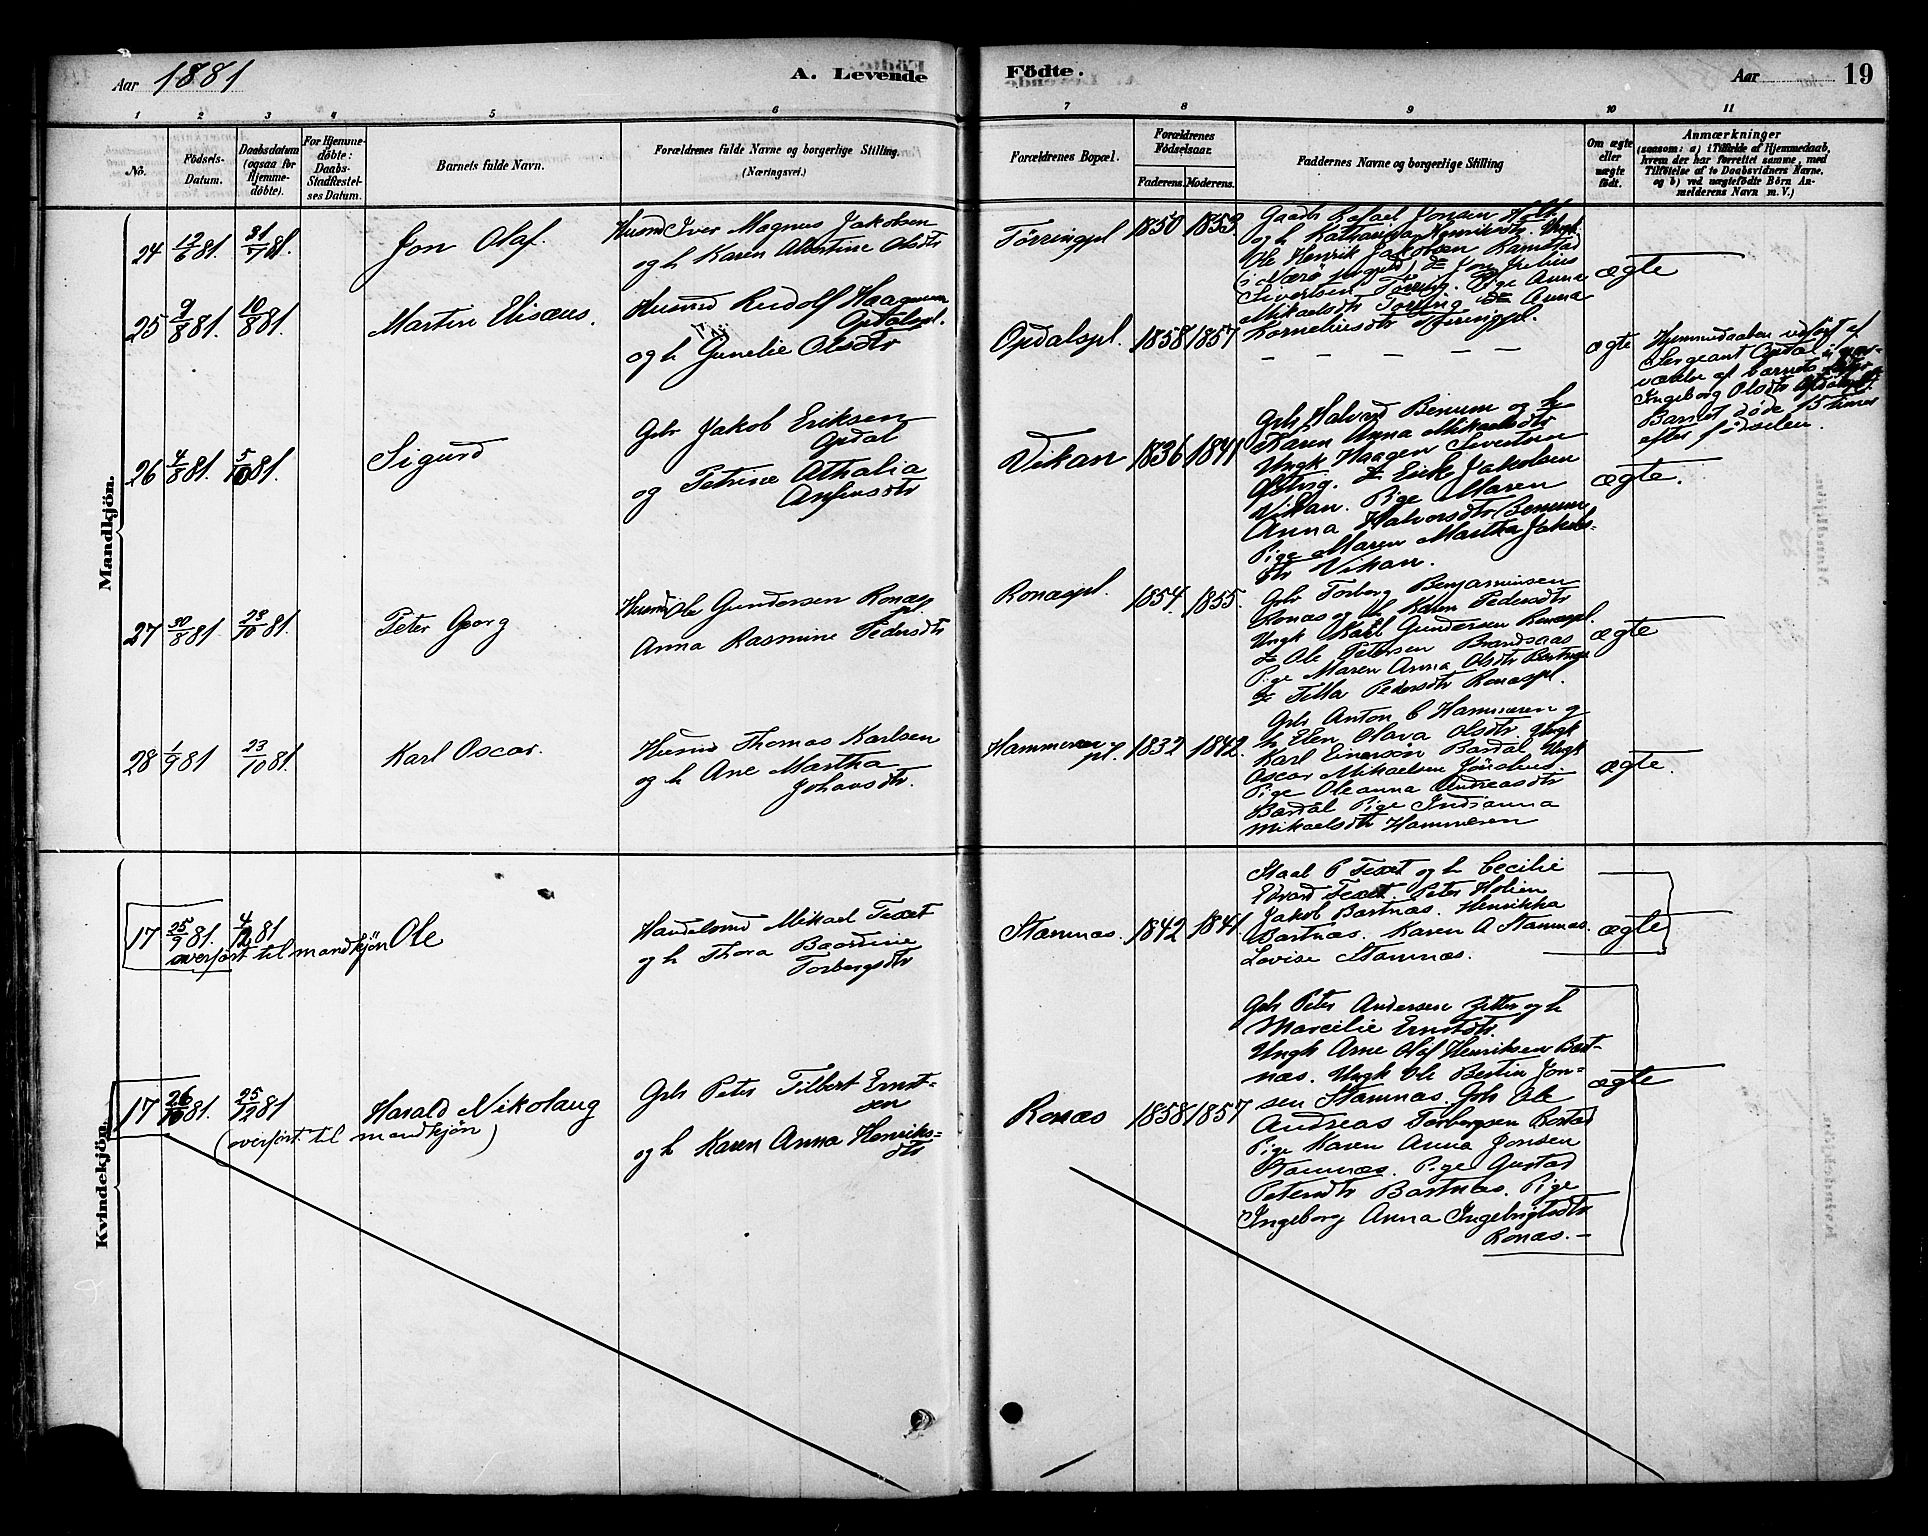 Aar 1881
A. Levende
Födte.
Aar
19
1 2 3 4 5 6 7 8 9 10 11
No.
Födsels-
Datum.
Daabsdatum
(ogsaa for
Hjemme-
döbte).
For Hjemme-
döbte:
Daabs-
Stadfæstel-
ses Datum.
Barnets fulde Navn.
Forældrenes fulde Navne og borgerlige Stilling.
(Næringsvei.)
Forældrenes Bopæl.
Forældrenes
Födselsaar.
Faderens. Moderens.
Faddernes Navne og borgerlige Stilling
Om ægte
eller
uægte
födt.
Anmærkninger
(saasom: a) i Tilfælde af Hjemmedaab,
hvem der har forrettet samme, med
Tilföielse af to Daabsvidners Navne,
og b) ved uægtefödte Börn An-
melderens Navn m. V.)
Mandkjön.
24 12/6 81. 31/7 81.
Jon Olaf.
Husmd Iver Magnus Jakobsen
og h Karen Albertine Olsdtr
Törringpl 1850 1853.
Gaardb Rafael Jonsen
og h Henriksdtr. Ungk
Ole Henrik Jakobsen Ramstad
Sivertsen Törring. Pige Anna
Mikaelsdtr Törring Anna
Korneliusdtr Törringpl.
ægte
25 9/8 81. 10/8 81.
Martin Elisæus.
Husmd Rudolf Haagensen
Opdalspl.
og h Gunelie Olsdtr
Opdalspl. 1858 1857
– – – – –
ægte
Hjemmedaaben udfört af
Sergeant Opdal i nær-
værelse af barnets
Ingeborg Olsdtr Opdalspl.
Barnet döde 15 timer
efter födselen.
26 4/8 81. 5/10 81.
Sigurd
Gbr Jakob Eriksen
Opdal
og Petrine Athalia
Anfinsdtr
Vikan 1836 1841
Gbr Halvard Benum og h
Karen Anna Mikaelsdtr
Ungk Haagen Sivertsen
Erik Jakobsen
Vikan. Pige Maren
Anna Halvorsdtr Benum
Pige Maren Martha Jakobs-
dtr Vikan.
ægte.
27 30/8 81. 23/10 81.
Peter Georg
Husmd Ole Gundersen Ronæs
pl.
Anna Rasmine Pedersdtr
Ronæspl. 1854. 1855.
Gbr Torberg Benjaminsen
Ronæs og h Karen Pedersdtr
Ungk Karl Gundersen Ronæspl.
Ole Petersen Brandsaas
Pige Maren Anna Olsdtr Bartnæs
Tilla Pedersdtr Ronæspl.
ægte
28 1/9 81 23/10 81.
Karl Oscar.
Husmd Thomas Karlsen
og h Ane Martha
Johansdtr.
Hammeren
pl. 1832 1842.
Gbr Anton C Hammeren og
h Elen Olava Olsdtr. Ungk
Karl Einersön Bardal Ungk
Oscar Mikaelsen
Pige Oleanna Andreasdtr
Bardal Pige Indianna
Mikaelsdtr Hammeren
ægte.
Kvindekjön.
17 25/9 81. 4/12 81
overfört til mandkjön
Ole
Handelsmd Mikael Texet
og h Thora Baardine
Torbergsdtr
Stamnæs. 1842 1841
Staal P Texet og h Cecilie
Edvard Texet Peter Holien
Jakob Bartnæs. Henrikka
Bartnæs. Karen A Stamnæs.
Lovise Stamnæs.
ægte
17 26/10 81. 25/12 81
(overfört til mandkjön)
Harald Nikolaug
Gbr Peter Tilbert Ernst-
sen
og h Karen Anna Henriks-
dtr
Ronæs 1858 1857
Gbr Peter Andersen Zetter og h
Marcilie Ernstdtr.
Ungk Arne Olaf Henriksen Bart-
næs. Ungk Ole Bestin Jon-
sen Stamnæs. Gbr Ole
Andreas Torbergsen Bostad
Pige Karen Anna Jonsen
Stamnæs. Pige Gustad
Petersdtr Bartnæs. Pige
Ingeborg Anna Ingebrigtsdtr
Ronæs. –
ægte